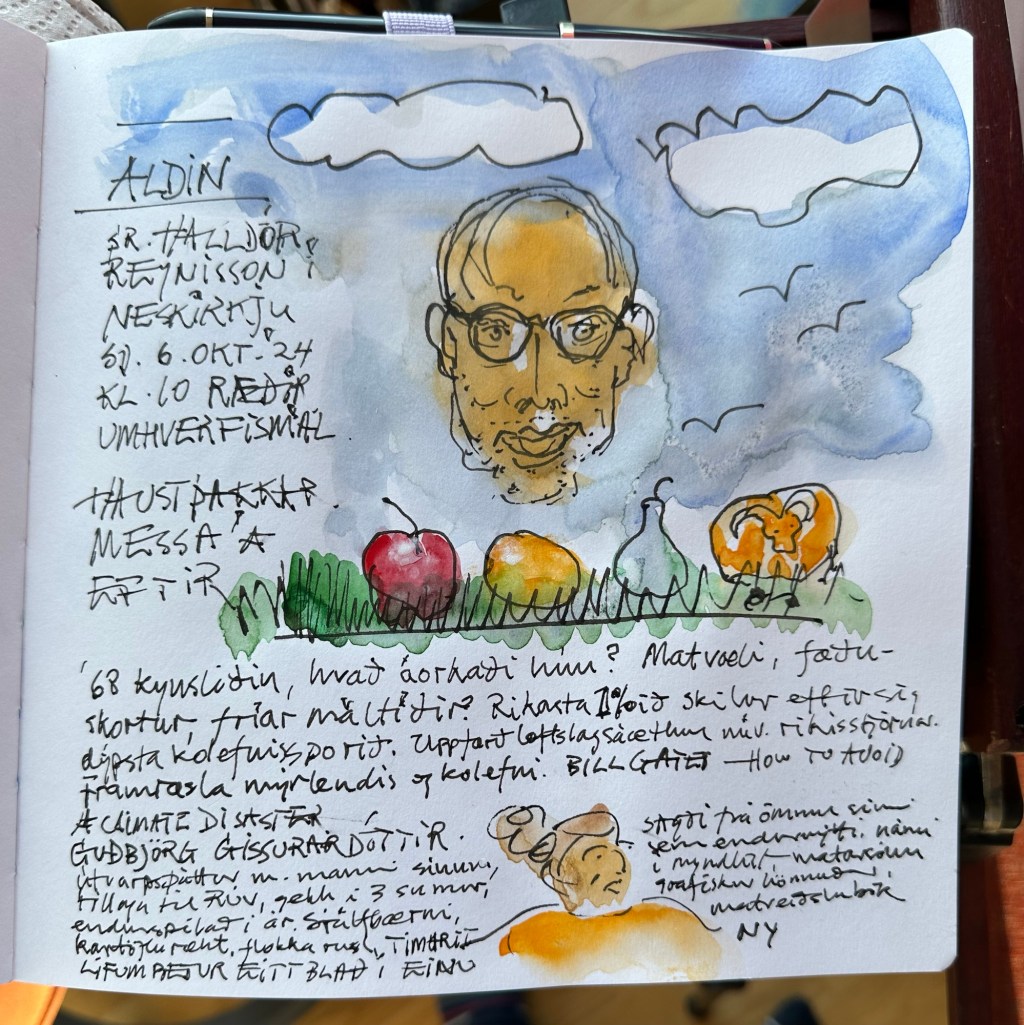 ALDIN
SR. HALLDÓR
REYNISSON Í
NESKIRKJU
6. OKT. 24
KL. 10 RÆÐIR
UMHVERFISMÁL
HAUSTÞAKKAR
MESSA Á
EFTIR
'68 kynslóðin, hvað áorkaði hún? Matvæli, fæðu-
skortur, fríar máltíðir? Ríkasta 1%ið skilur eftir sig
dýpsta kolefnissporið. Uppfærð loftslagsáætlun núv. ríkisstjórnar.
Framræsla mýrlendis og kolefni. BILL GATES - HOW TO AVOID
A CLIMATE DISASTER
GUÐBJÖRG GISSURARDÓTTIR.
útvarpsþáttur m. manni sínum,
tillaga til RÚV, gekk í 3 sumur,
endurspilað í ár. Sjálfbærni,
kartöflurækt, flokka rusl, TÍMARIT
LIFUM BETUR EITT BLAÐ Í EINU
sagði frá ömmu sinni
sem endurnýtti. nám
í myndlist, matarsóun
grafískur hönnuður,
matreiðslubók
NY